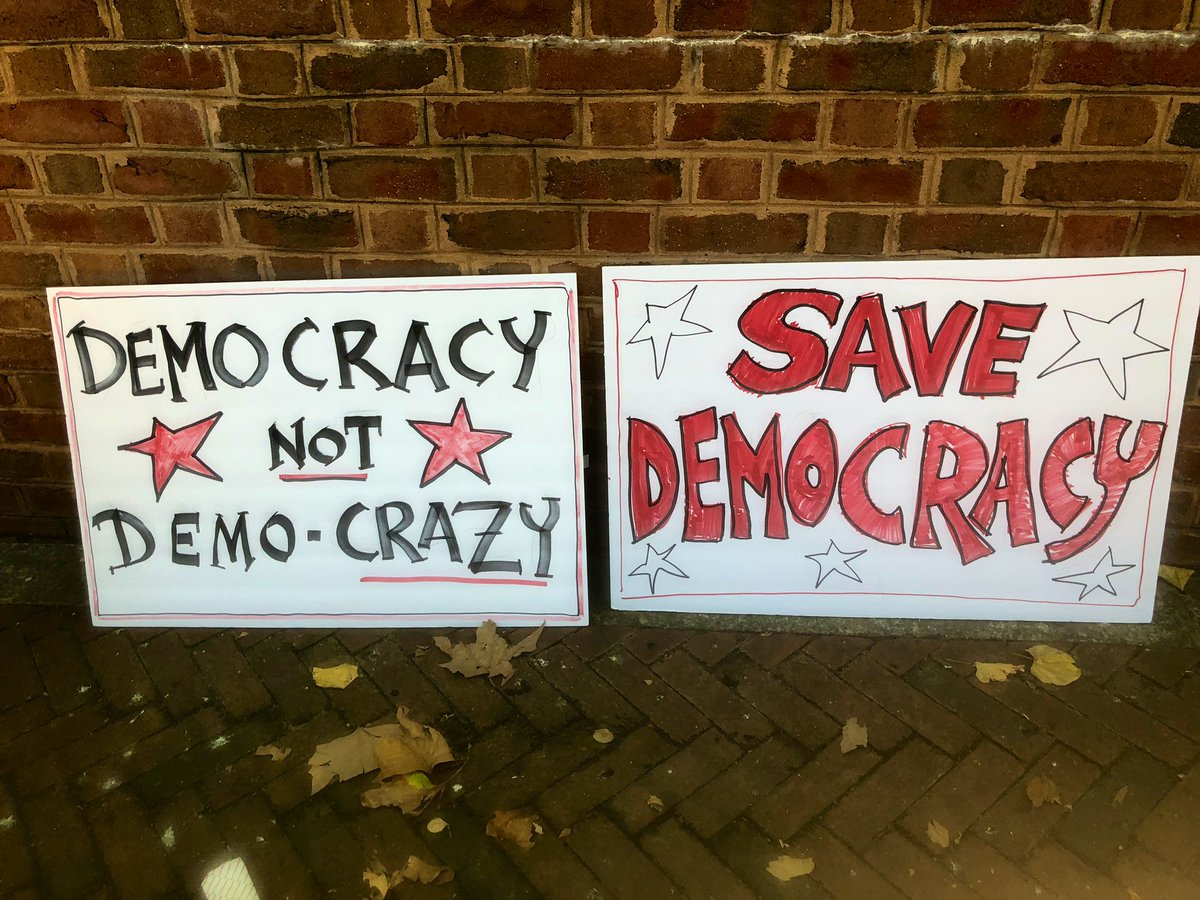 DEMOCRACY
NOT
DEMO-CRAZY
SAVE
DEMOCRACY